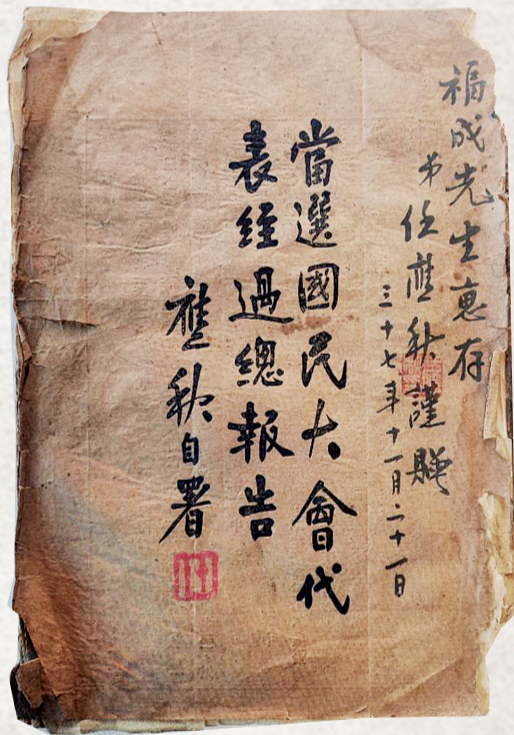 福成先生惠存
弟任應秋謹贈
三十七年十一月二十一日
當選國民大會代
表經過總報告
應秋自署